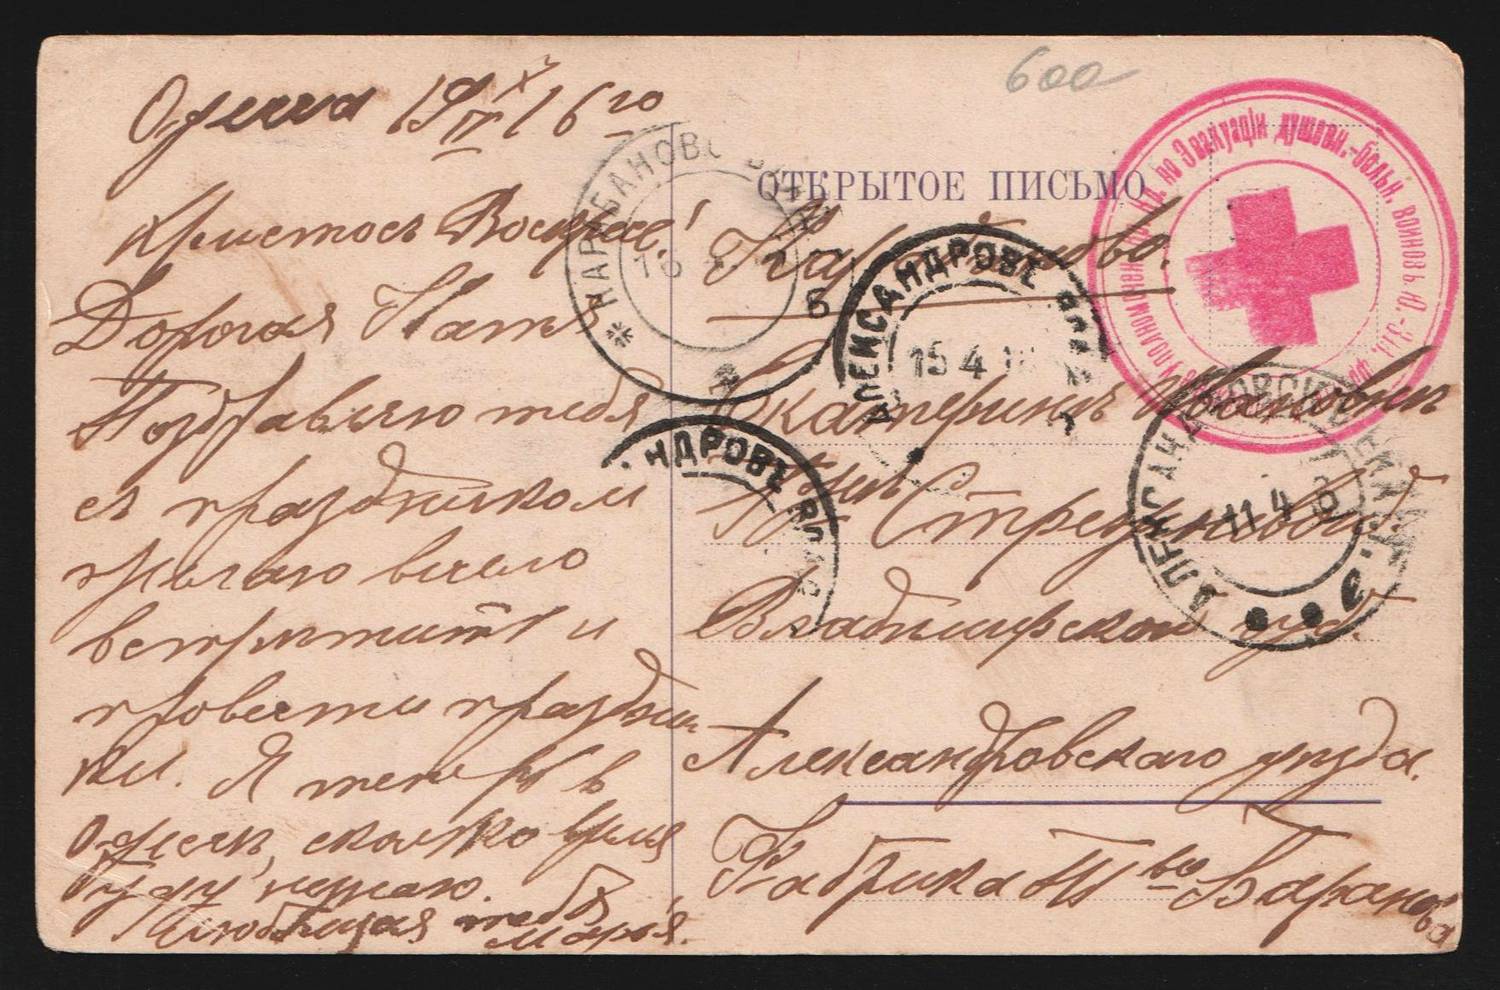 600
Одесса 19 IV 16 го
Христосъ Воскресе!
Дорогая Катя
Поздравляю тебя
съ праздникомъ
желаю весело
встретить и
провести праздни
ки. Я теперь в
Одессе, сколько время
буду не знаю.
Любящая тебя
Марья.
ОТКРЫТОЕ ПИСЬМО
Карабаново.
Екатеринѣ Ивановнѣ
Владимирской губ.
Александровскаго уѣзда.
Фабрика Т-во Баранова
КАРАБАНОВО
АЛЕКСАНДРОВЪ ВЛАД
15 4 1
НДРОВЪ ВЛ
АЛЕКСАНДРОВСКІЙ
11 4
по Эвакуаціи душевн.-больн. воиновъ Ю.-Зап.